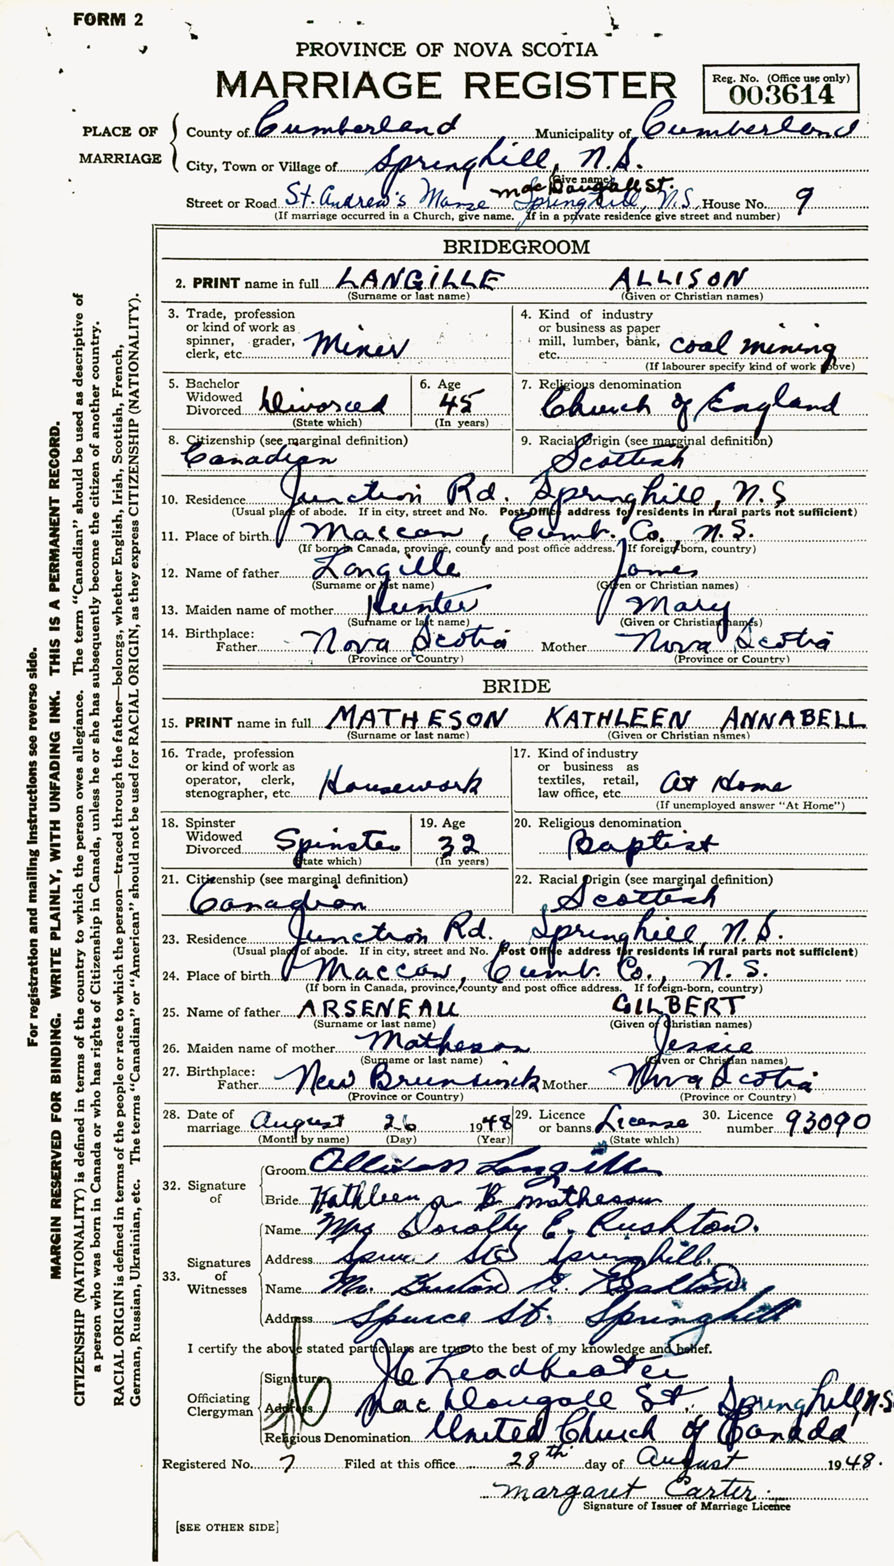 FORM 2
PROVINCE OF NOVA SCOTIA
MARRIAGE REGISTER
Reg. No. (Office use only)
003614
PLACE OF MARRIAGE
County of Cumberland Municipality of Cumberland
City, Town or Village of Springhill, N.S.
(Give name) MacDougall St.
Street or Road St. Andrew's Manse Springhill, N.S. House No. 9
(If marriage occurred in a Church, give name. If in a private residence give street and number)
BRIDEGROOM
2. PRINT name in full LANGILLE ALLISON
(Surname or last name) (Given or Christian names)
3. Trade, profession or kind of work as spinner, grader, clerk, etc. Miner
4. Kind of industry or business as paper mill, lumber, bank, etc. coal mining
(If labourer specify kind of work above)
5. Bachelor Widowed Divorced Divorced
(State which)
6. Age 45
(In years)
7. Religious denomination Church of England
8. Citizenship (see marginal definition) Canadian
9. Racial Origin (see marginal definition) Scottish
10. Residence Junction Rd. Springhill, N.S
(Usual place of abode. If in city, street and No. Post-Office address for residents in rural parts not sufficient)
11. Place of birth Maccan, Cumb. Co., N.S.
(If born in Canada, province, county and post office address. If foreign-born, country)
12. Name of father Langille James
(Surname or last name) (Given or Christian names)
13. Maiden name of mother Hunter Mary
(Surname or last name) (Given or Christian names)
14. Birthplace: Father Nova Scotia Mother Nova Scotia
(Province or Country) (Province or Country)
BRIDE
15. PRINT name in full MATHESON KATHLEEN ANNABELL
(Surname or last name) (Given or Christian names)
16. Trade, profession or kind of work as operator, clerk, stenographer, etc. Housework
17. Kind of industry or business as textiles, retail, law office, etc. At Home
(If unemployed answer "At Home")
18. Spinster Widowed Divorced Spinster
(State which)
19. Age 32
(In years)
20. Religious denomination Baptist
21. Citizenship (see marginal definition) Canadian
22. Racial Origin (see marginal definition) Scottish
23. Residence Junction Rd. Springhill N.S.
(Usual place of abode. If in city, street and No. Post Office address for residents in rural parts not sufficient)
24. Place of birth Maccan, Cumb. Co., N.S.
(If born in Canada, province, county and post office address. If foreign-born, country)
25. Name of father ARSENEAU GILBERT
(Surname or last name) (Given or Christian names)
26. Maiden name of mother Matheson Jessie
(Surname or last name) (Given or Christian names)
27. Birthplace: Father New Brunswick Mother Nova Scotia
(Province or Country) (Province or Country)
28. Date of marriage August 26 1948
(Month by name) (Day) (Year)
29. Licence or banns License
(State which)
30. Licence number 93090
32. Signature of
Groom Allison Langille
Bride Kathleen A B Matheson
33. Signatures of Witnesses
Name Mrs Dorothy E. Rushton.
Address Spruce St Springhill.
Name Mr. Rushton
Address Spruce St. Springhill
I certify the above stated particulars are true to the best of my knowledge and belief.
Officiating Clergyman
Signature J C Leadbeater
Address MacDougall St. Springhill, N.S
Religious Denomination United Church of Canada
Registered No. 7 Filed at this office 28th day of August 1948.
Margaret Carter
Signature of Issuer of Marriage Licence
[SEE OTHER SIDE]
For registration and mailing instructions see reverse side.
MARGIN RESERVED FOR BINDING. WRITE PLAINLY, WITH UNFADING INK. THIS IS A PERMANENT RECORD.
CITIZENSHIP (NATIONALITY) is defined in terms of the country to which the person owes allegiance. The term "Canadian" should be used as descriptive of
a person who was born in Canada or who has rights of Citizenship in Canada, unless he or she has subsequently become the citizen of another country.
RACIAL ORIGIN is defined in terms of the people or race to which the person—traced through the father—belongs, whether English, Irish, Scottish, French,
German, Russian, Ukrainian, etc. The terms "Canadian" or "American" should not be used for RACIAL ORIGIN, as they express CITIZENSHIP (NATIONALITY).